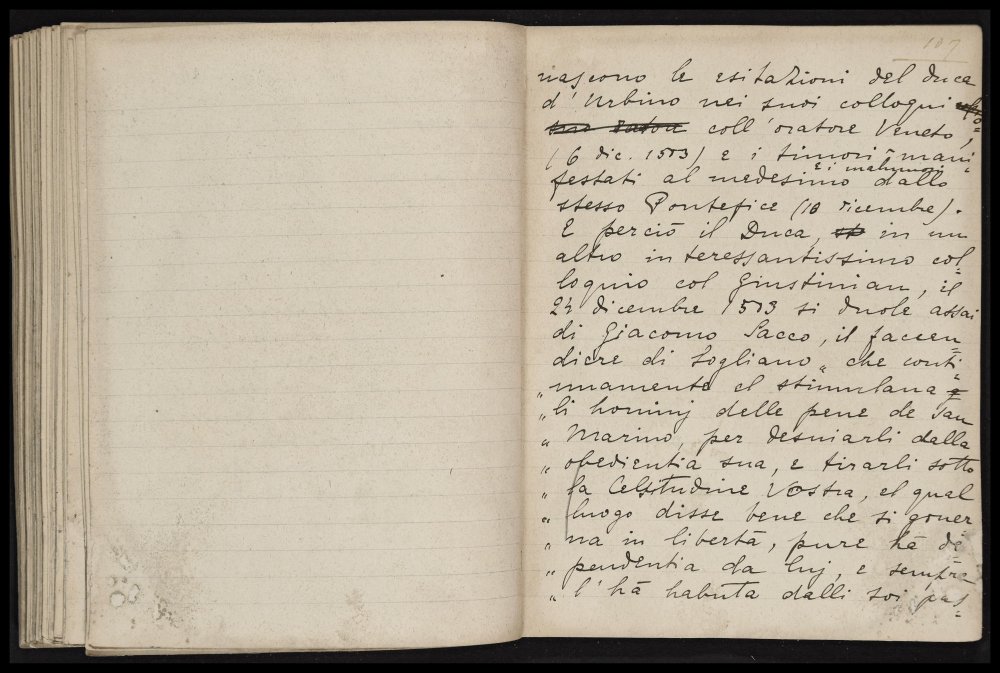 107
nascono le esitazioni del Duca
d'Urbino nei suoi colloqui
coll'oratore Veneto,
(6 dic. 1503) e i timori mani=
e i malumori
festati al medesimo dallo
stesso Pontefice (18 dicembre).
E perciò il Duca, in un
altro interessantissimo col=
loquio col Giustinian, il
24 dicembre 1503 si duole assai
di Giacomo Sacco, il faccen=
diere di Sogliano „ che conti=
„ nuamente el stimulava
„ li hominj delle pene de San
„ Marino, per desuiarli dalla
„ obedientia sua, e tirarli sotto
„ la Celsitudine Vostra, el qual
„ luogo disse bene che si gouer
„ na in libertà, pure hà de=
„ pendentia da luj, e sempre
„ l'hà habuta dalli soi pas=